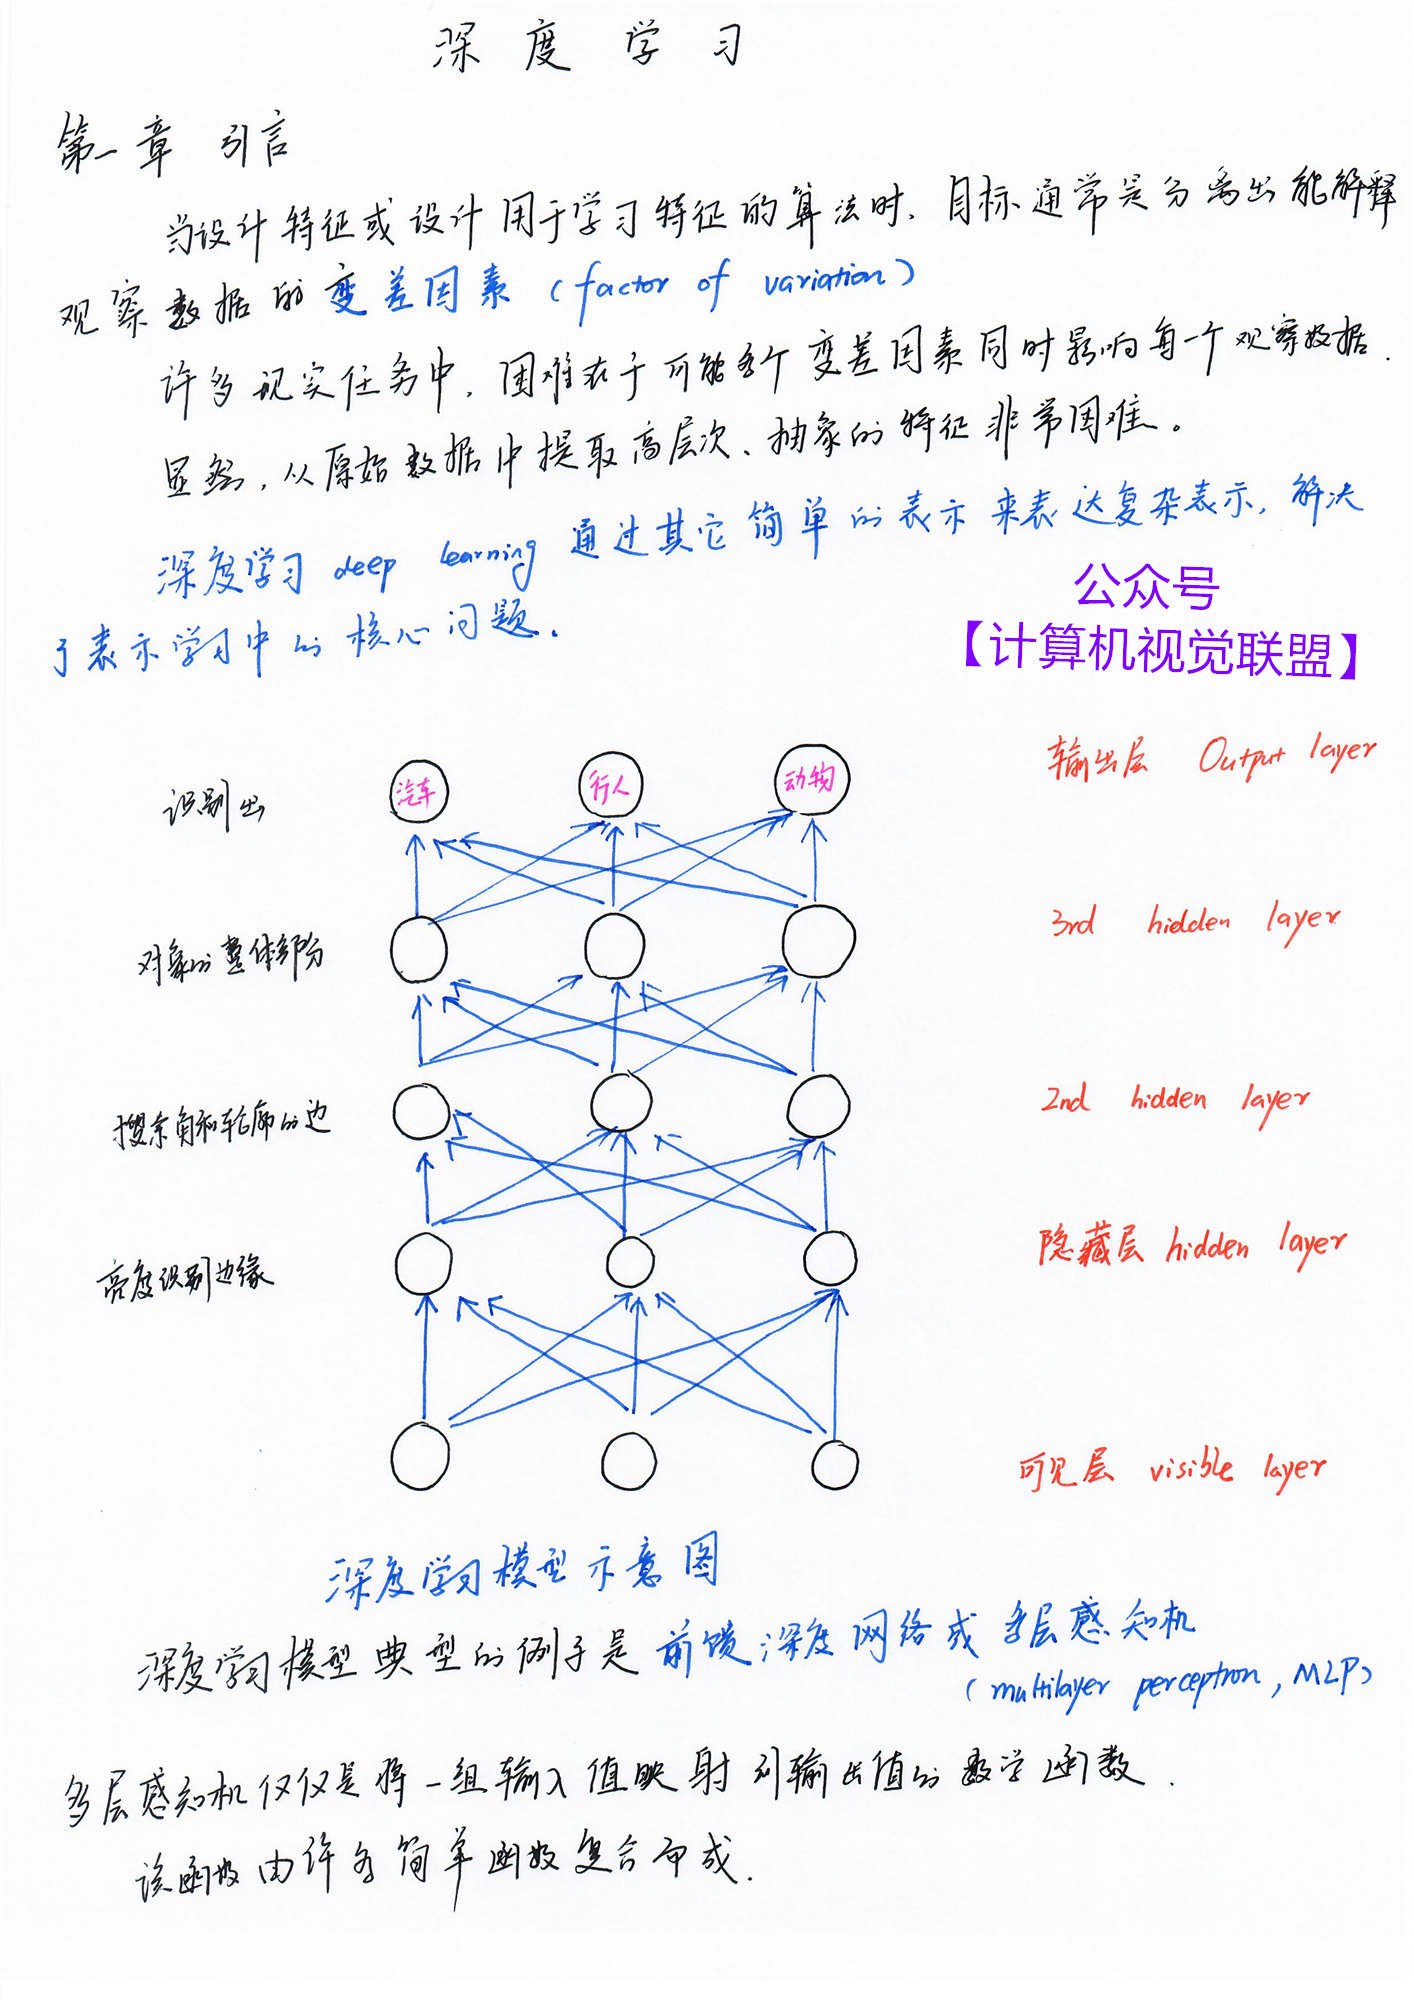 深度学习
第一章 引言
当设计特征或设计用于学习特征的算法时，目标通常是分离出能解释
观察数据的变差因素（factor of variation）
许多现实任务中，困难在于可能多个变差因素同时影响每一个观察数据.
显然，从原始数据中提取高层次、抽象的特征非常困难。
深度学习 deep learning 通过其它简单的表示来表达复杂表示，解决
了表示学习中的核心问题.
公众号
【计算机视觉联盟】
识别出 汽车 行人 动物 输出层 Output layer
对象的整体部分 3rd hidden layer
搜索角和轮廓的边 2nd hidden layer
亮度识别边缘 隐藏层 hidden layer
可见层 visible layer
深度学习模型示意图
深度学习模型典型的例子是前馈深度网络或多层感知机
（multilayer perceptron, MLP）
多层感知机仅仅是将一组输入值映射到输出值的数学函数.
该函数由许多简单函数复合而成.